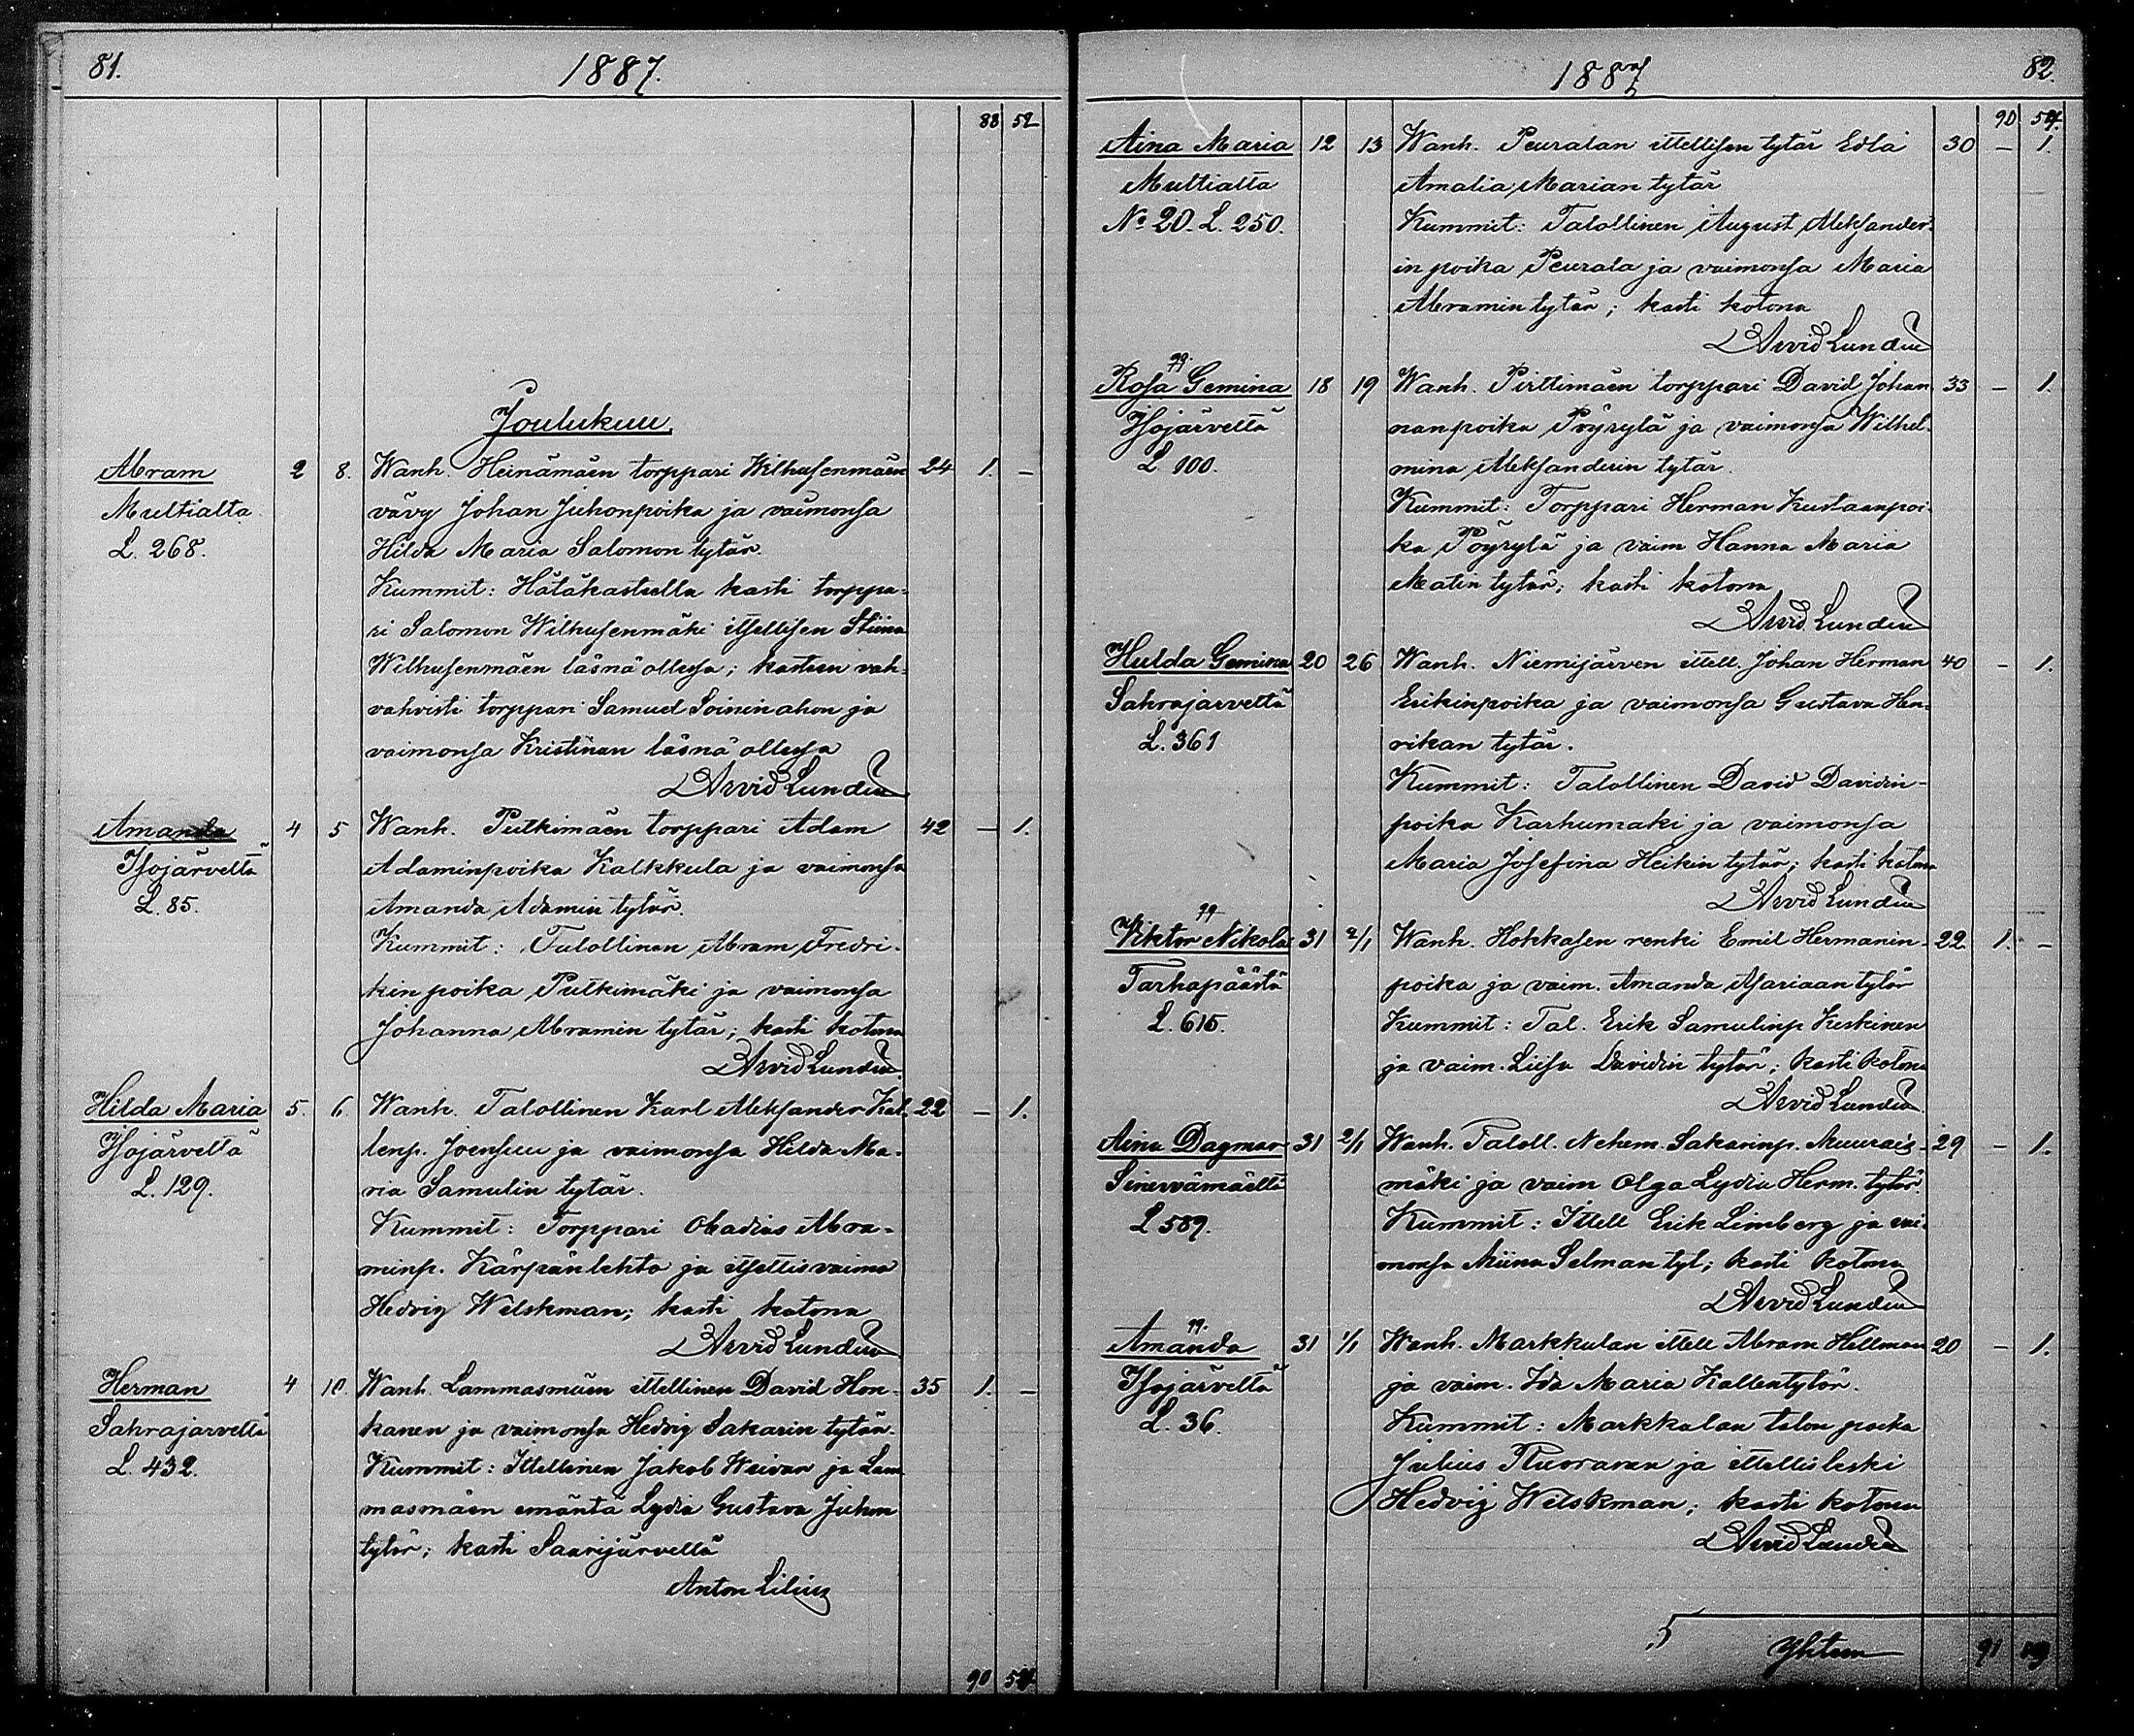 81.
1887.
88 52
Joulukuu
Abram 2 8. Wanh. Heinämäen torppari Wilhusenmäen 24 1. –
Multialta vävy Johan Juhonpoika ja vaimonsa
L. 268. Hilda Maria Salomon tytär.
Kummit: Hätäkasteella kasti torppa-
ri Salomon Wilhusenmäki itsellisen Stiina
Wilhusenmäen läsnä ollessa; kasteen vah-
vahvisti torppari Samuel Soininahon ja
vaimonsa Kristiinan läsnä ollessa
Arvid Lundin
Amanda 4 5 Wanh. Putkimäen torppari Adam 42 – 1.
Isojärveltä Adaminpoika Kalkkula ja vaimonsa
L. 85. Amanda Adamin tytär.
Kummit: Talollinen Abram Fredri-
kin poika Putkimäki ja vaimonsa
Johanna Abramin tytär; kasti kotona
Arvid Lundin
Hilda Maria 5. 6 Wanh. Talollinen Karl Aleksander Kal- 22 – 1.
Isojärveltä lenp. Joensuu ja vaimonsa Hilda Ma-
L. 129. ria Samulin tytär.
Kummit: Torppari Obadias Abra-
minp. Kärpänlehto ja itsellisvaimo
Hedvig Wilskman; kasti kotona
Arvid Lundin
Herman 4 10 Wanh. Lammasmäen ittellinen David Hon- 35 1. –
Sahrajärveltä kanen ja vaimonsa Hedvig Sakarin tytär.
L. 432. Kummit: Ittellinen Jakob Weivar ja Lam
masmäen emäntä Lydia Gustava Juhon
tytär; kasti Saarijärvellä
Anton Lilius
90 54
1887
82.
90 54.
Aina Maria 12 13 Wanh. Peuralan ittellisen tytär Edla 30 – 1.
Multialta Amalia Marian tytär
No 20. L. 250. Kummit: Talollinen August Aleksander-
in poika Peurala ja vaimonsa Maria
Abramin tytär; kasti kotona
Arvid Lundin
Rosa Gemina 18 19 Wanh. Pirttimäen torppari David Johan 33 – 1.
Isojärveltä nanpoika Pöyrylä ja vaimonsa Wilhel-
L 100. mina Aleksanderin tytär.
Kummit: Torppari Herman Kustaanpoi-
ka Pöyrylä ja vaim Hanna Maria
Matin tytär; kasti kotona
Arvid Lundin
Hulda Gemina 20 26 Wanh. Niemijärven ittell. Johan Herman 40 – 1.
Sahrajärveltä Erikinpoika ja vaimonsa Gustava Hen-
L. 361 rikan tytär.
Kummit: Talollinen David Davidin-
poika Karhumäki ja vaimonsa
Maria Josefina Heikin tytär; kasti kotona
Arvid Lundin
Viktor Nikolai 31 2/1 Wanh. Hokkasen renki Emil Hermanin- 22 1. –
Tarhapäästä poika ja vaim. Amanda Asariaan tytär
L. 615. Kummit: Tal. Erik Samulinp Keskinen
ja vaim. Liisa Davidin tytär; kasti kotona
Arvid Lundin
Aina Dagmar 31 2/1 Wanh. Taloll. Nehem. Sakarinp. Muurais- 29 – 1.
Sinervämäeltä mäki ja vaim Olga Lydia Herm. tytär.
L 589. Kummit: Ittell Erik Limberg ja vai-
monsa Miina Selman tyt; kasti kotona
Arvid Lundin
Amanda 31 1/1 Wanh. Markkulan ittell Abram Hellman 20 – 1.
Isojärveltä ja vaim. Ida Maria Kallentytär.
L. 36. Kummit: Markkulan talon poika
Julius Tuoranen ja ittellisleski
Hedvig Wilskman; kasti kotona
Arvid Lundin
Yhteen 91 59